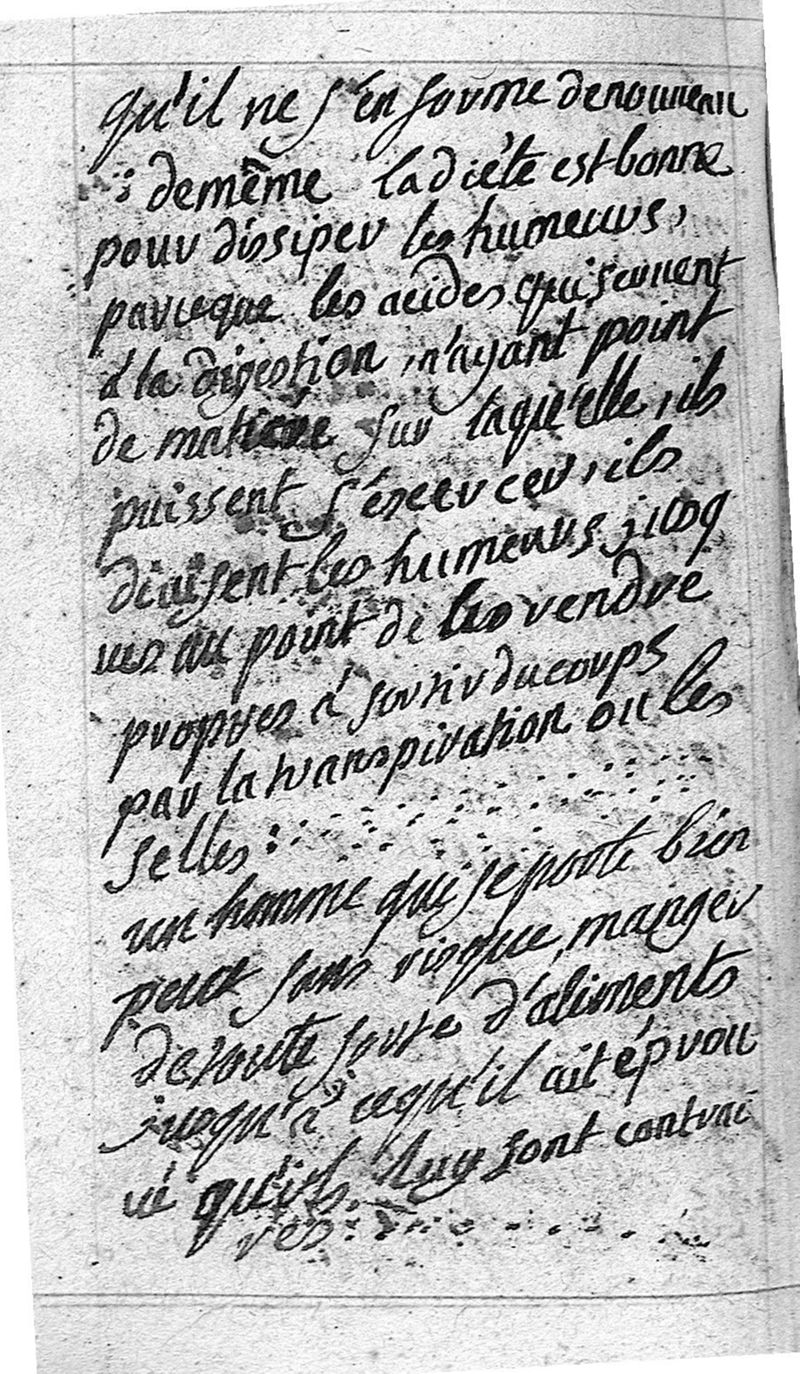 qu'il ne s'en forme denouueau
; demême ladiéte estbonne
pour dissiper les humeurs,
parceque les acides quiseruent
á la digestion, n'ayant point
de matiere sur laqu'elle, ils
puissent s'éxercer, ils
diuisent les humeurs, jusq
ues au point de les rendre
propres á sortir ducorps
par la transpiration ou les
selles:
un homme qui seporte bien
peut sans risque, manger
detoute sorte d'aliments
jusqu'á cequ'il ait éprou
ué qu'ils luy sont contrai
res: